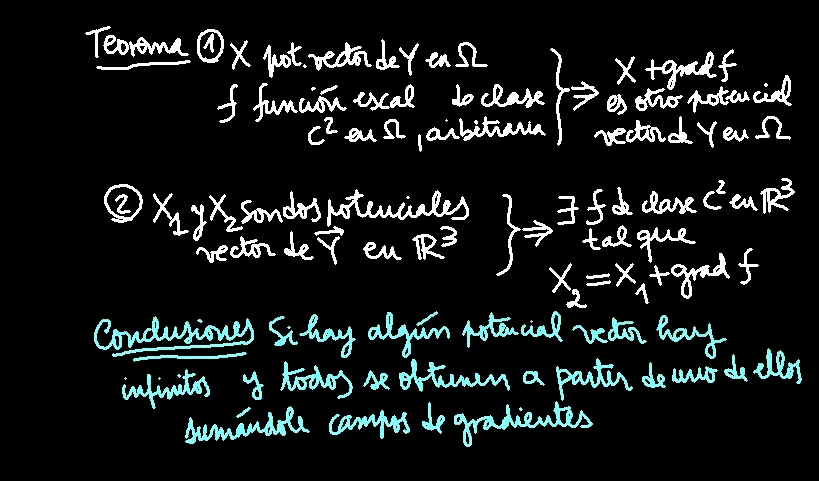 Teorema ① X pot. vector de Y en Ω
f función escal de clase
C² en Ω, arbitraria
⇒ X + grad f
es otro potencial
vector de Y en Ω
② X₁ y X₂ son dos potenciales
vector de Y⃗ en ℝ³
⇒ ∃ f de clase C² en ℝ³
tal que
X₂ = X₁ + grad f
Conclusiones Si hay algún potencial vector hay
infinitos y todos se obtienen a partir de uno de ellos
sumándole campos de gradientes